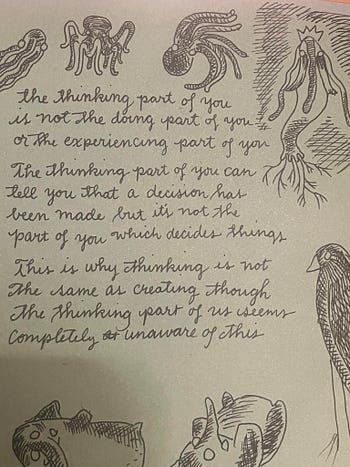 the thinking part of you
is not the doing part of you
or the experiencing part of you
The thinking part of you can
tell you that a decision has
been made but it's not the
part of you which decides things
This is why thinking is not
the same as creating though
the thinking part of us seems
completely unaware of this